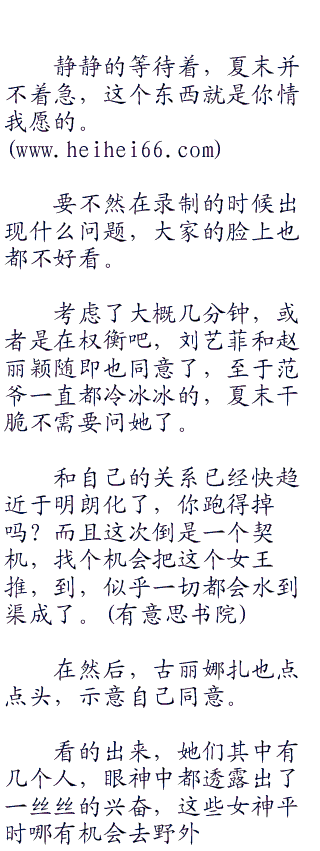 静静的等待着，夏末并
不着急，这个东西就是你情
我愿的。
(www.heihei66.com)
要不然在录制的时候出
现什么问题，大家的脸上也
都不好看。
考虑了大概几分钟，或
者是在权衡吧，刘艺菲和赵
丽颖随即也同意了，至于范
爷一直都冷冰冰的，夏末干
脆不需要问她了。
和自己的关系已经快趋
近于明朗化了，你跑得掉
吗？而且这次倒是一个契
机，找个机会把这个女王
推，到，似乎一切都会水到
渠成了。(有意思书院)
在然后，古丽娜扎也点
点头，示意自己同意。
看的出来，她们其中有
几个人，眼神中都透露出了
一丝丝的兴奋，这些女神平
时哪有机会去野外